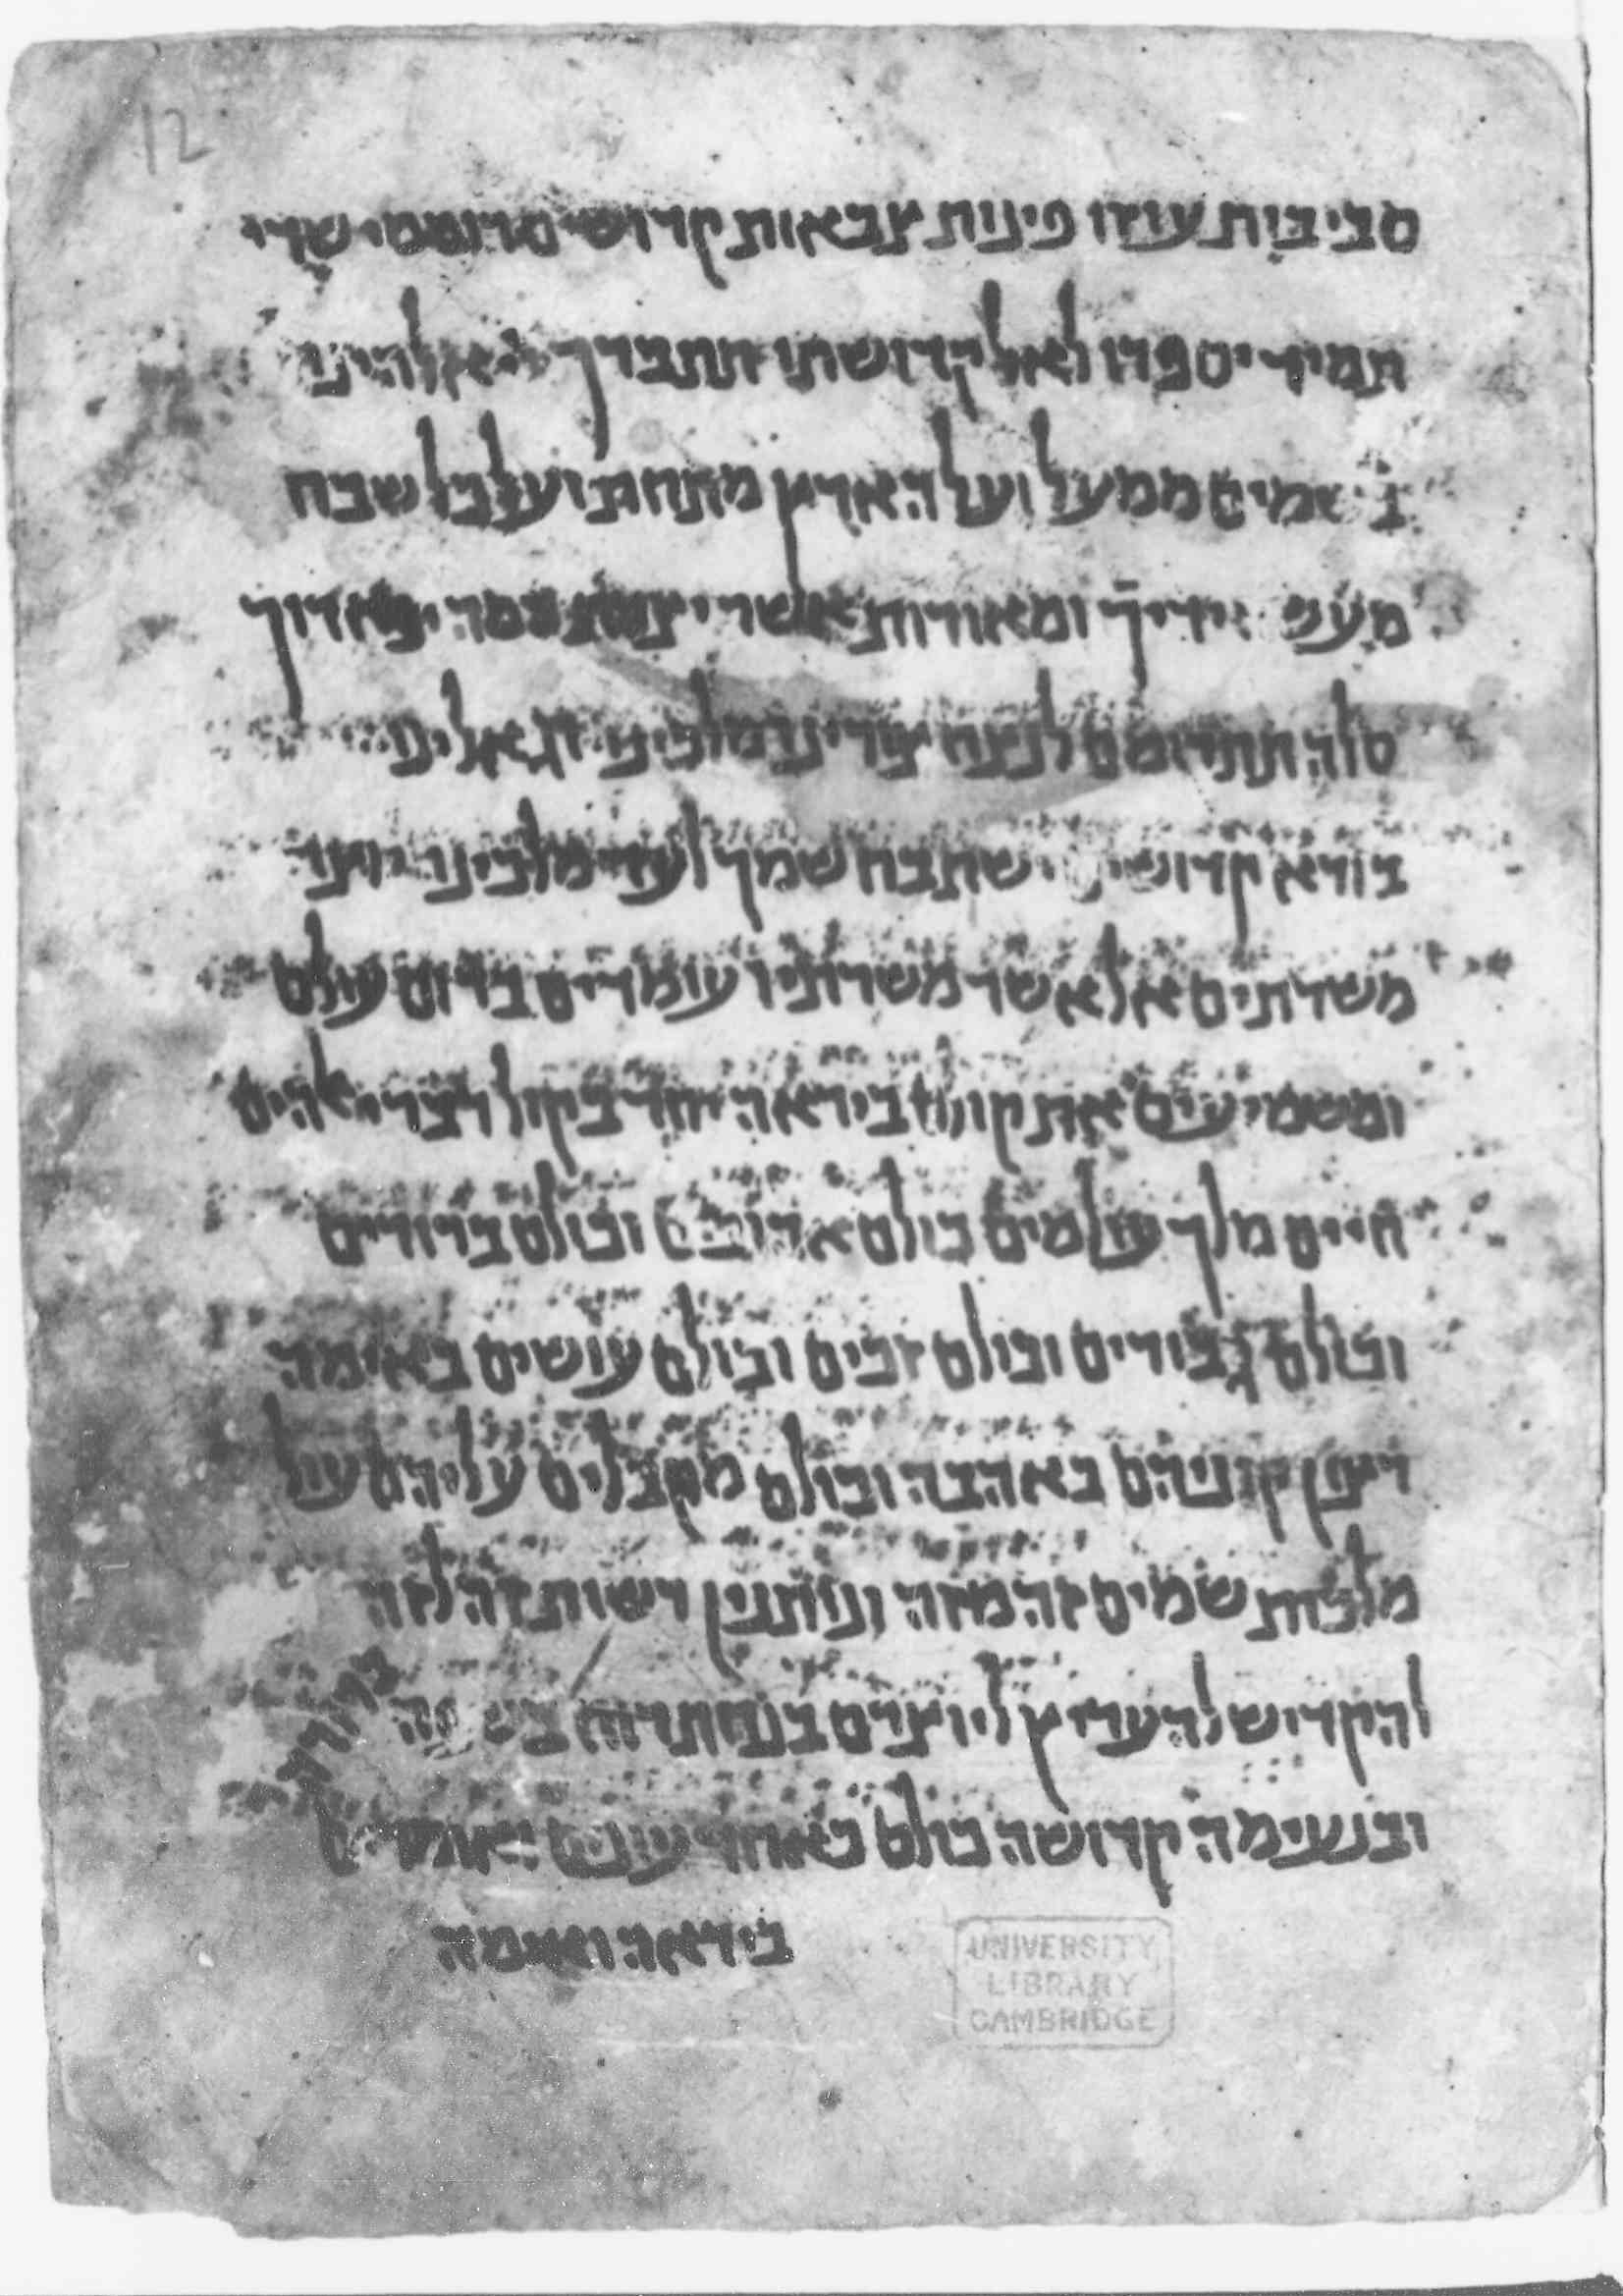 12
סביבות עוזו פינות צבאות קדושים רוממי שדי
תמיד יספרו לאל קדושתו תתברך אלהינו
בשמים ממעל ועל הארץ מתחת ועל כל שבח
מעשי ידיך ומאורות אשר יצרת המה יפארוך
סלה תתרומם לנצח צורינו מלכינו וגואלינו
בורא קדושים ישתבח שמך לעד מלכינו יוצר
משרתים אל אשר משרתיו עומדים ברום עולם
ומשמיעים את קולם ביראה יחד בקול דברי אלהים
חיים מלך עולמים כולם אהובים וכולם ברורים
וכולם גבורים וכולם זכים וכולם עושים באימה
רצון קוניהם באהבה וכולם מקבלים עליהם עול
מלכות שמים זה מזה ונותנין רשות זה לזה
להקדיש להעריץ ליוצרם בנחת רוח בשפה ברורה
ובנעימה קדושה כולם כאחד עונים ואומרים
ביראה ואימה
UNIVERSITY
LIBRARY
CAMBRIDGE